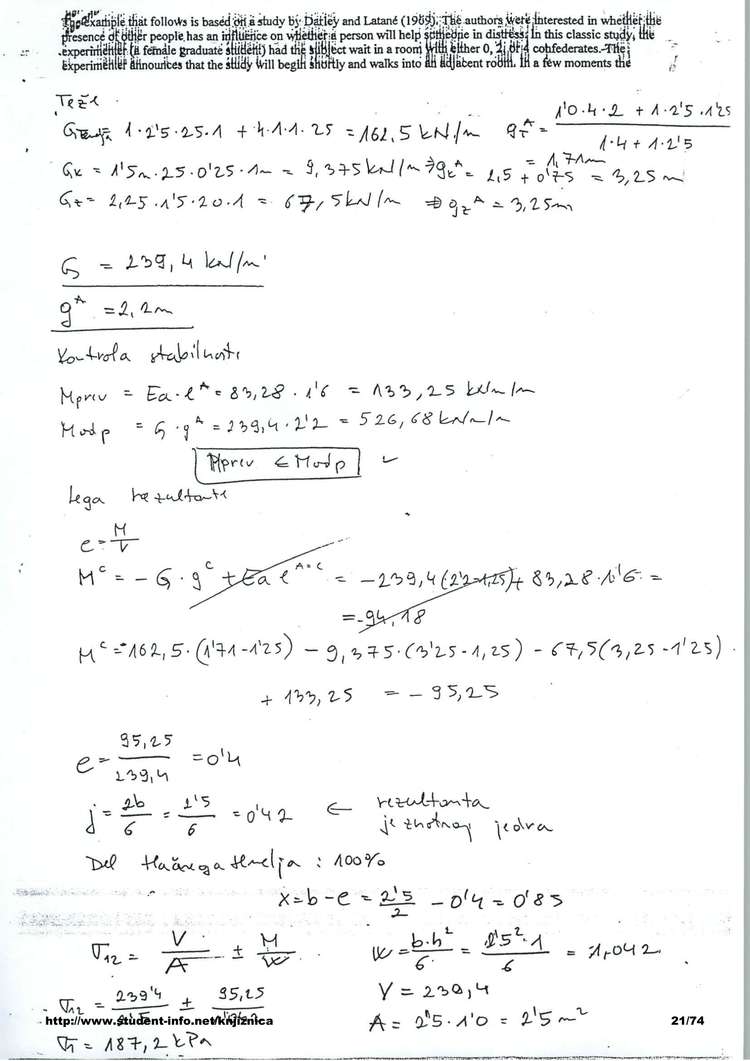 The example that follows is based on a study by Darley and Latané (1969). The authors were interested in whether the
presence of other people has an influence on whether a person will help someone in distress. In this classic study, the
experimenter (a female graduate student) had the subject wait in a room with either 0, 2, or 4 confederates. The
experimenter announces that the study will begin shortly and walks into an adjacent room. In a few moments the
Teže
1·2'5·25·1 + 4·1·1·25 = 162,5 kN/m gᴛᴬ = (1'0·4·2 + 1·2'5·1'25) / (1·4 + 1·2'5)
= 1,71m
Gk = 1'5m·25·0'25·1m = 9,375 kN/m ⇒ gkᴬ = 2,5 + 0'75 = 3,25 m
Gz = 2,25·1'5·20·1 = 67,5 kN/m ⇒ gzᴬ = 3,25m
G = 239,4 kN/m'
gᴬ = 2,2m
Kontrola stabilnosti
Mprev = Ea·eᴬ = 83,28·1'6 = 133,25 kNm/m
Modp = G·gᴬ = 239,4·2'2 = 526,68 kNm/m
Mprev ∈ Modp ✓
Lega rezultante
e = M/V
Mᶜ = -G·gᶜ + Ea eᴬ⁼ᶜ = -239,4(2'2-1,25) + 83,28·1'6 =
= -94,18
Mᶜ = 162,5·(1'71-1'25) - 9,375·(3'25-1,25) - 67,5(3,25-1'25)
+ 133,25 = -95,25
e = 95,25/239,4 = 0'4
j = 2b/6 = 2'5/6 = 0'42 ← rezultanta
je znotraj jedra
Del tlačnega temelja : 100%
x = b - e = 2'5/2 - 0'4 = 0'85
σ12 = V/A ± M/W W = b·h²/6 = 2'5²·1/6 = 1,042
V = 239,4
σ12 = 239'4/2'5 ± 95,25
A = 2'5·1'0 = 2'5 m²
http://www.student-info.net/knjiznica 21/74
σ1 = 187,2 kPa